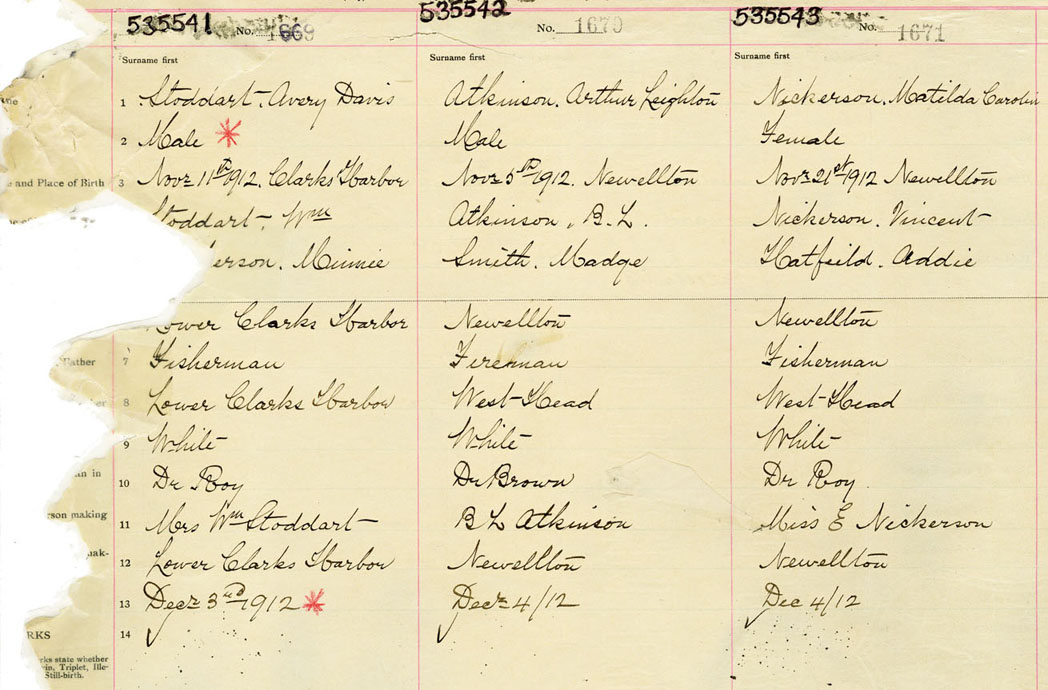 535541 No. 1669
535542 No. 1670
535543 No. 1671
Surname first Surname first Surname first
1 Stoddart. Avery Davis Atkinson. Arthur Leighton Nickerson. Matilda Carolin
2 Male * Male Female
and Place of Birth 3 Novr 11th 1912. Clarks Harbor Novr 5th 1912. Newellton Novr 21st 1912 Newellton
toddart. Wm Atkinson. B. L. Nickerson. Vincent
erson. Minnie Smith. Madge Hatfeild. Addie
ower Clarks Harbor Newellton Newellton
Father 7 Fisherman Fireman Fisherman
8 Lower Clarks Harbor West Head West Head
9 White White White
an in
10 Dr Roy Dr Brown Dr Roy
rson making
11 Mrs Wm Stoddart B L Atkinson Miss E Nickerson
mak-
12 Lower Clarks Harbor Newellton Newellton
13 Decr 3rd 1912 * Decr 4/12 Dec 4/12
14
RKS
rks state whether
in, Triplet, Ille-
Still-birth.